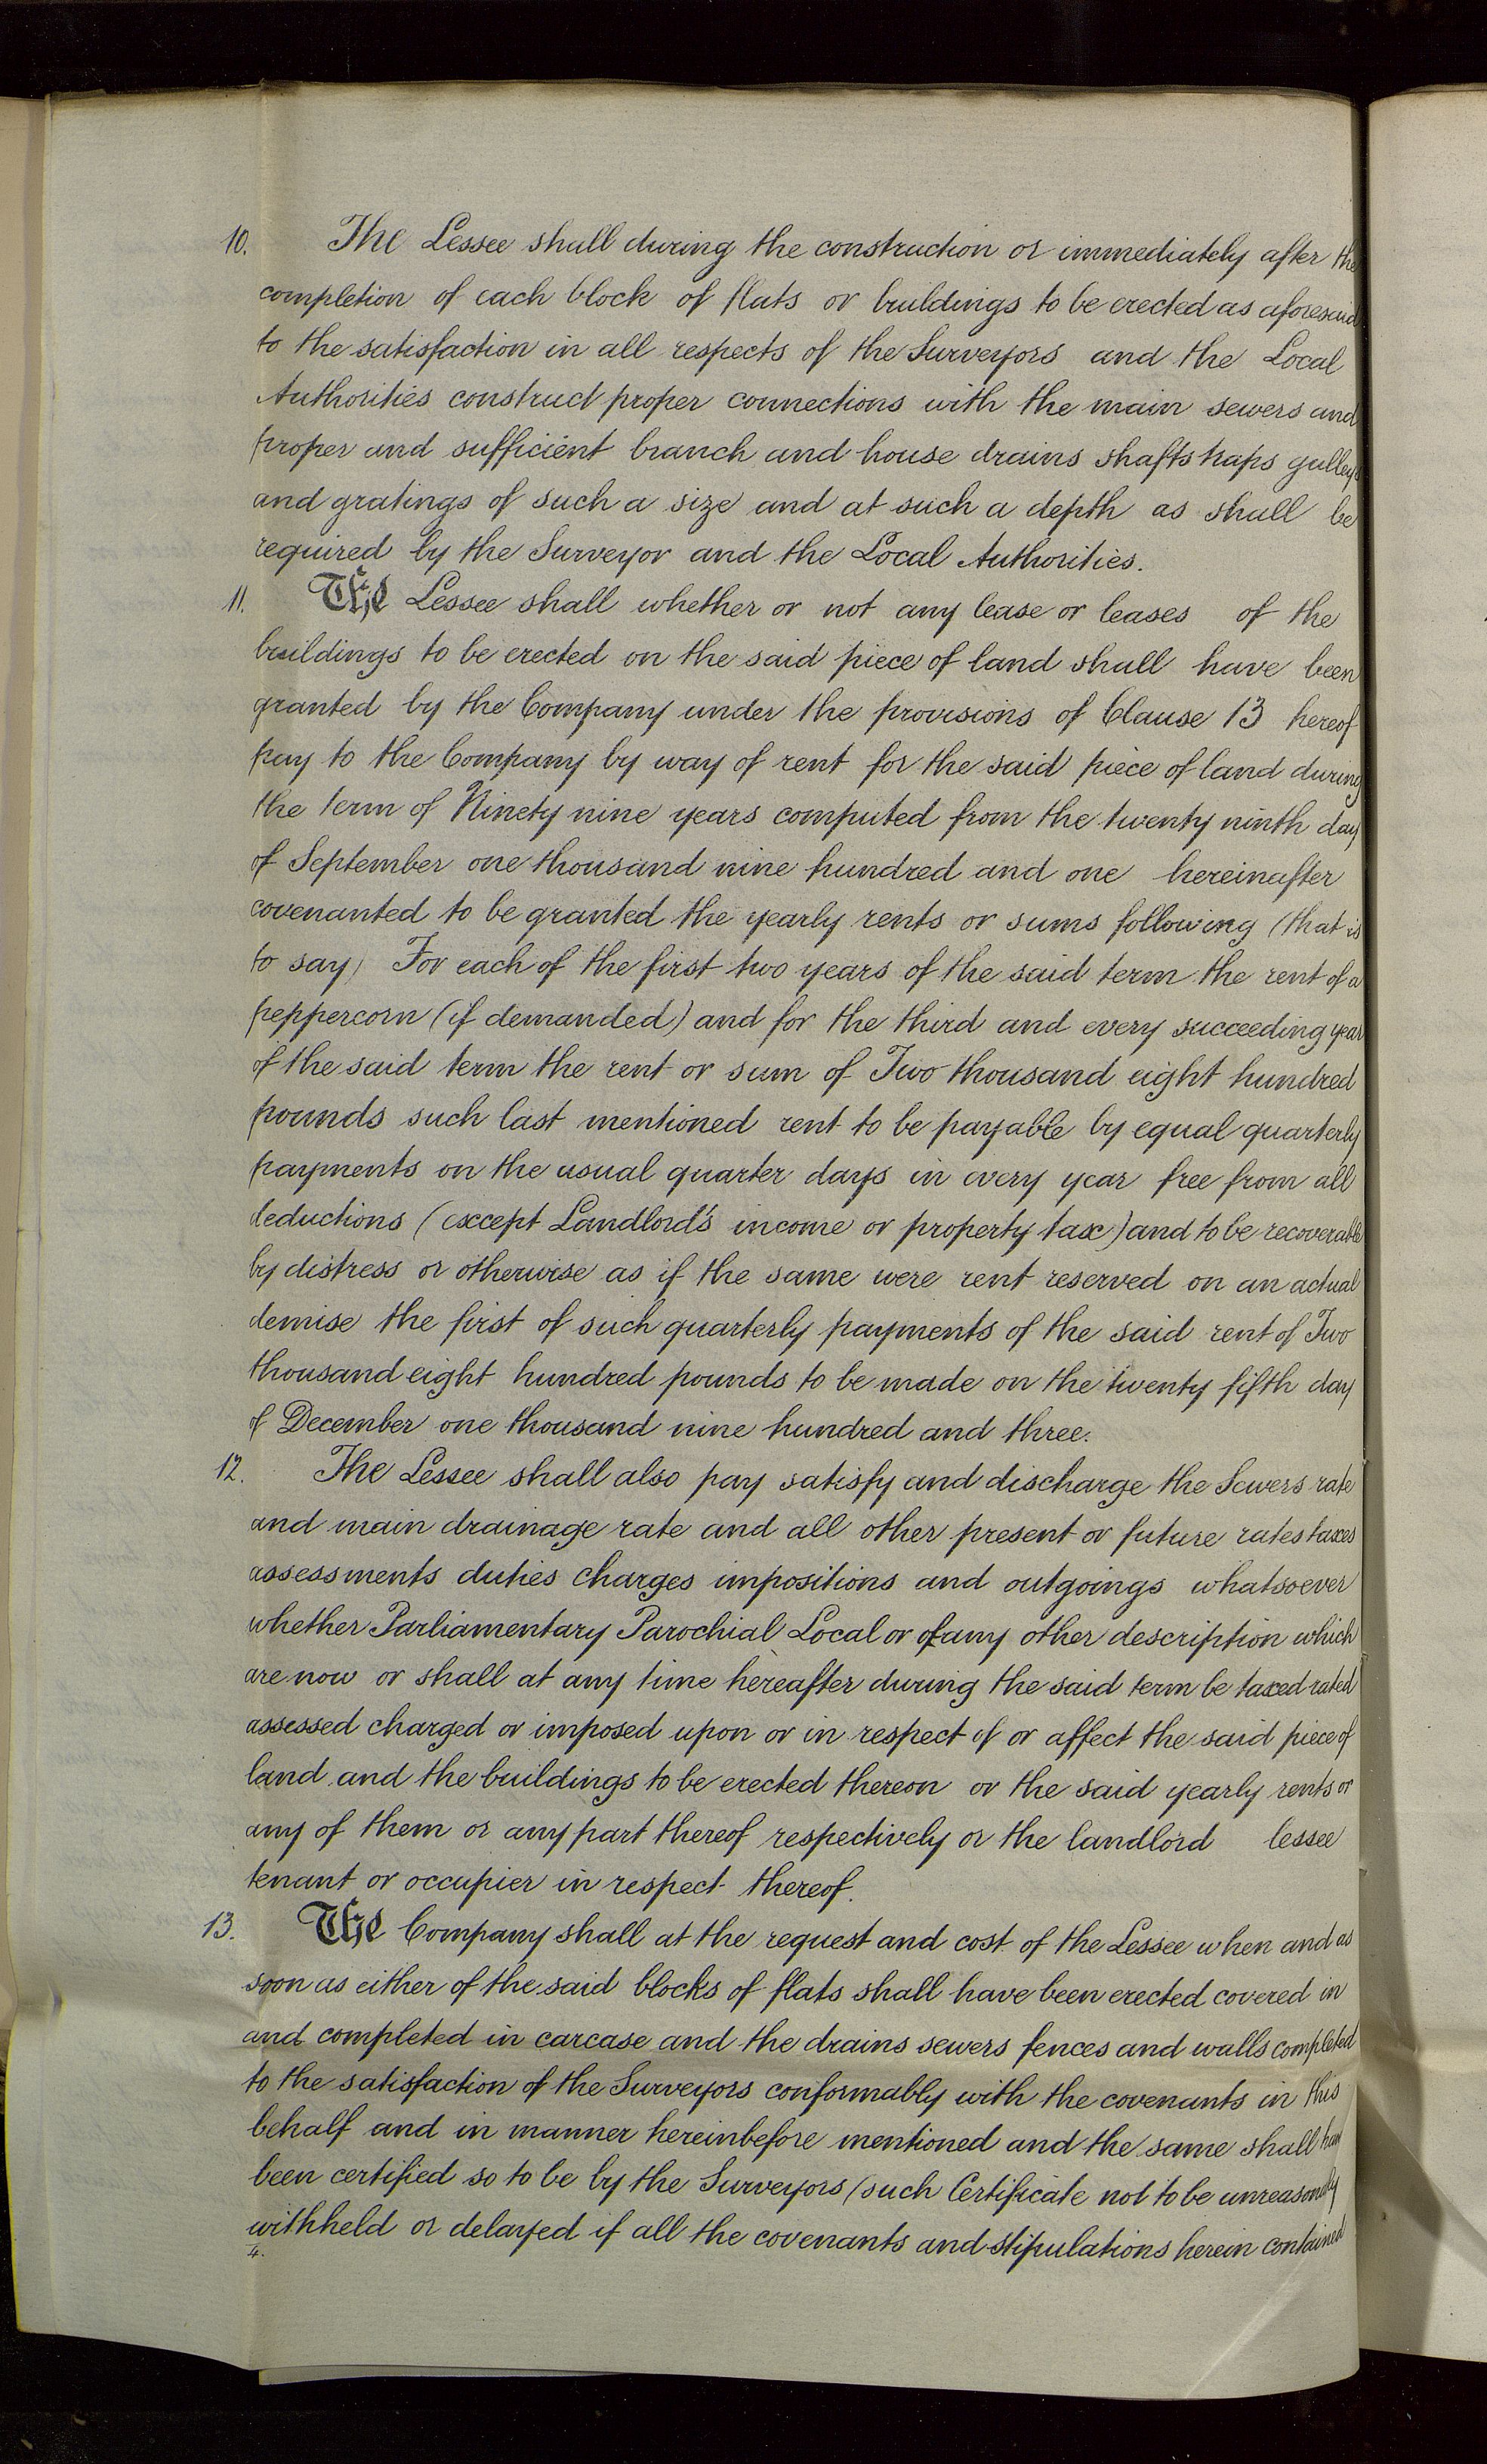 10. The Lessee shall during the construction or immediately after the
completion of each block of flats or buildings to be erected as aforesaid
to the satisfaction in all respects of the Surveyors and the Local
Authorities construct proper connections with the main sewers and
proper and sufficient branch and house drains shafts traps gulleys
and gratings of such a size and at such a depth as shall be
required by the Surveyor and the Local Authorities.
11. The Lessee shall whether or not any lease or leases of the
buildings to be erected on the said piece of land shall have been
granted by the Company under the provisions of Clause 13 hereof
pay to the Company by way of rent for the said piece of land during
the term of Ninety nine years computed from the twenty ninth day
of September one thousand nine hundred and one hereinafter
covenanted to be granted the yearly rents or sums following (that is
to say) For each of the first two years of the said term the rent of a
peppercorn (if demanded) and for the third and every succeeding year
of the said term the rent or sum of Two thousand eight hundred
pounds such last mentioned rent to be payable by equal quarterly
payments on the usual quarter days in every year free from all
deductions (except Landlord's income or property tax) and to be recoverable
by distress or otherwise as if the same were rent reserved on an actual
demise the first of such quarterly payments of the said rent of Two
thousand eight hundred pounds to be made on the twenty fifth day
of December one thousand nine hundred and three.
12. The Lessee shall also pay satisfy and discharge the Sewers rate
and main drainage rate and all other present or future rates taxes
assessments duties charges impositions and outgoings whatsoever
whether Parliamentary Parochial Local or of any other description which
are now or shall at any time hereafter during the said term be taxed rated
assessed charged or imposed upon or in respect of or affect the said piece of
land and the buildings to be erected thereon or the said yearly rents or
any of them or any part thereof respectively or the landlord lessee
tenant or occupier in respect thereof.
13. The Company shall at the request and cost of the Lessee when and as
soon as either of the said blocks of flats shall have been erected covered in
and completed in carcase and the drains sewers fences and walls completed
to the satisfaction of the Surveyors conformably with the covenants in this
behalf and in manner hereinbefore mentioned and the same shall have
been certified so to be by the Surveyors (such Certificate not to be unreasonably
withheld or delayed if all the covenants and stipulations herein contained
4.